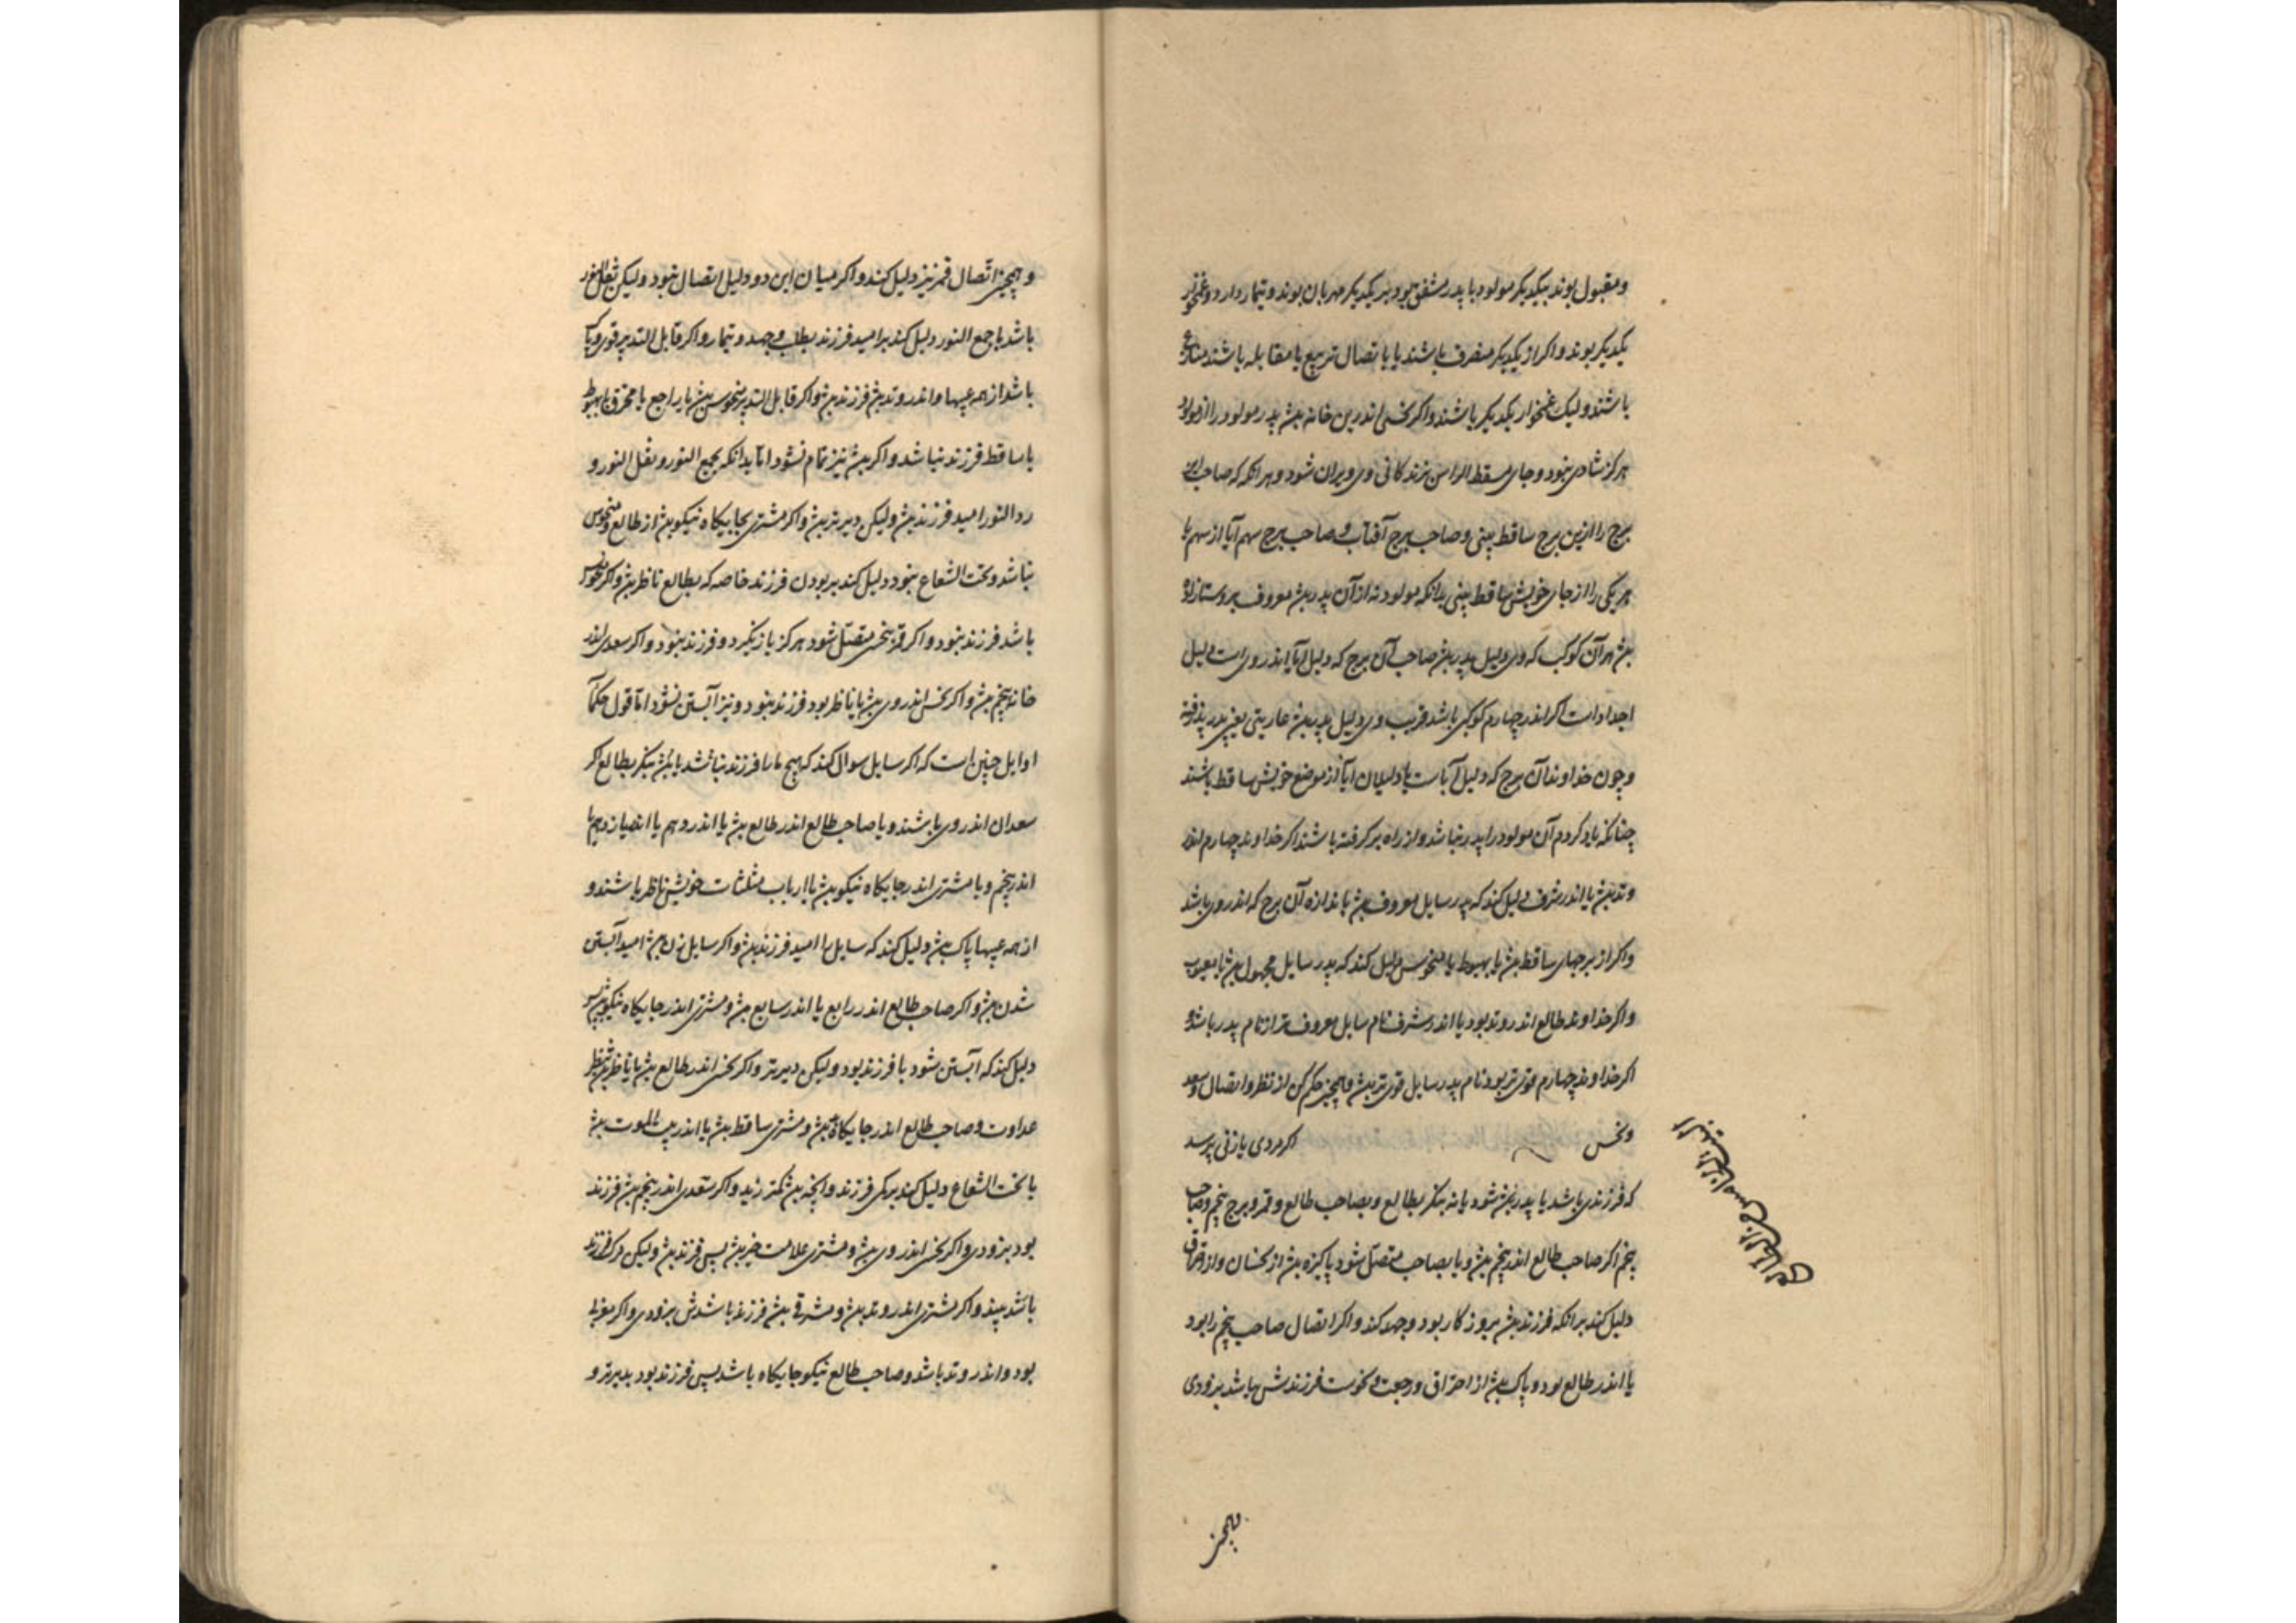 و مقبول بوند بیکدیگر مولود با پدر مشفق بود و بر یکدیگر مهربان بوند و تیمار دارد و غمخوار
یکدیگر بوند و اکر از یکدیگر منصرف باشند یا باتصال تربیع یا مقابله باشند
باشند ولیک غمخوار یکدیگر باشند و اکر نحسی اندرین خانه بش پدر مولود را از مولود
هرکز شادی نبود و جای مسقط الراس زندکانی وی ویران شود و بر انکه که صاحب این
برج را ازین برج ساقط بینی و صاحب برج آفتاب و صاحب برج سهم آبا از سهم یا
هر یکی را از جای خویش ساقط بینی بدانکه مولود نه از آن پدر بش معروف
بش هر آن کوکب که وی دلیل پدر بش صاحب آن برج که دلیل آبا اندروی است دلیل
اجداد است اکر اندر چهارم کوکبی باشد غریب وی دلیل پدر بش عاریتی یعنی پدر پذرفته
و چون خداوند آن برج که دلیل آبا است یا دلیلان آبا از موضع خویش ساقط باشند
چنانکه یاد کردم آن مولود را پدر نباشد و از راه برکرفته باشند اکر خداوند چهارم اندر
وتد بش یا اندر شرف دلیل کند که پدر سایل معروف بش باندازه آن برج که اندر وی باشد
و اکر از برجهای ساقط بش یا بهبوط یا منحوس دلیل کند که پدر سایل مجهول بش یا معیوب
و اکر خداوند طالع اندر وتد بود یا اندر شرف نام سایل معروف تر از نام پدر باشد و
اکر خداوند چهارم قوی تر بود نام پدر سایل قوی تر بش و همچنین حکم کن از نظر و اتصال و سعد
و نحس اکر مردی یا زنی پرسد
که فرزندی باشد یا پدر بش شود یا نه بنکر بطالع و بصاحب طالع و قمر و برج پنجم و صاحب
پنجم اکر صاحب طالع اندر پنجم بش و یا بصاحب متصل شود پاکیزه بش از نحسان و از احتراق
دلیل کند بر انکه فرزند بش بروزکار بود و جهد کند و اکر اتصال صاحب پنجم را بود
یا اندر طالع بود و پاک بش از احتراق و رجعت و نحوست فرزندش باشد بزودی
البیت الخامس من الطالع
همچنین
و همچنین اتصال قمر نیز دلیل کند و اکر میان این دو دلیل اتصال نبود ولیکن نقل النور
باشد یا جمع النور دلیل کند بر امید فرزند بطلب و جهد و تیمار و اکر قابل التدبیر قوی و پاک
باشد از همه عیبها و اندر وتد بش فرزند بش و اکر قابل التدبیر منحوس بش یا راجع یا محترق یا بهبوط
یا ساقط فرزند نباشد و اکر بش نیز تمام نشود اما بدانکه بجمع النور و نقل النور و
رد النور امید فرزند بش ولیکن دیرتر بش و اکر مشتری بجایکاه نیکو بش از طالع و منحوس
نباشد و تحت الشعاع نبود دلیل کند بر بودن فرزند خاصه که بطالع ناظر بش و اکر منحوس
باشد فرزند نبود و اکر قمر بنحس متصل شود هرکز باز نکیرد و فرزند نبود و اکر سعدی اندر
خانه پنجم بش و اکر نحس اندر وی بش یا ناظر بود فرزند نبود و نیز آبستن نشود اما قول حکمآ
اوایل چنین است که اکر سایل سوال کند که هیچ مارا فرزند باشد یا نی بنکر بطالع اکر
سعدان اندر وی باشند و یا صاحب طالع اندر طالع بش یا اندر دهم یا اندر یازدهم یا
اندر پنجم و یا مشتری اندر جایکاه نیکو بش یا ارباب مثلثات خویش ناظر باشند و
از همه عیبها پاک بش دلیل کند که سایل را امید فرزند بش و اکر سایل زن بش امید آبستن
شدن بش و اکر صاحب طالع اندر رابع یا اندر سابع بش و مشتری اندر جایکاه نیکو بش
دلیل کند که آبستن شود یا فرزند بود ولیکن دیرتر و اکر نحس اندر طالع بش یا ناظر بش بنظر
عداوت و صاحب طالع اندر جایکاه بد بش و مشتری ساقط بش یا اندر بیت الموت بش
یا تحت الشعاع دلیل کند بر کمی فرزند و انچه بش کمتر زید و اکر سعدی اندر پنجم بش فرزند
بود بزودی و اکر نحس اندر وی بش و مشتری علامت خیر بش پس فرزند بش ولیکن مرک فرزند
باشد ببیند و اکر مشتری اندر وتد بش و مشرقی بش فرزند باشدش بزودی و اکر مغربی
بود و اندر وتد باشد و صاحب طالع نیکو جایکاه باشد پس فرزند بود بدیرتر و